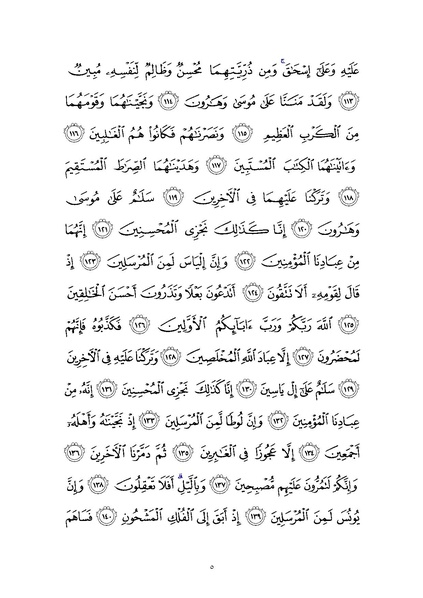 عَلَيْهِ وَعَلَىٰٓ إِسْحَٰقَ ۚ وَمِن ذُرِّيَّتِهِمَا مُحْسِنٌ وَظَالِمٌ لِّنَفْسِهِۦ مُبِينٌ
١١٣ وَلَقَدْ مَنَنَّا عَلَىٰ مُوسَىٰ وَهَٰرُونَ ١١٤ وَنَجَّيْنَٰهُمَا وَقَوْمَهُمَا
مِنَ ٱلْكَرْبِ ٱلْعَظِيمِ ١١٥ وَنَصَرْنَٰهُمْ فَكَانُوا۟ هُمُ ٱلْغَٰلِبِينَ ١١٦
وَءَاتَيْنَٰهُمَا ٱلْكِتَٰبَ ٱلْمُسْتَبِينَ ١١٧ وَهَدَيْنَٰهُمَا ٱلصِّرَٰطَ ٱلْمُسْتَقِيمَ
١١٨ وَتَرَكْنَا عَلَيْهِمَا فِى ٱلْـَٔاخِرِينَ ١١٩ سَلَٰمٌ عَلَىٰ مُوسَىٰ
وَهَٰرُونَ ١٢٠ إِنَّا كَذَٰلِكَ نَجْزِى ٱلْمُحْسِنِينَ ١٢١ إِنَّهُمَا
مِنْ عِبَادِنَا ٱلْمُؤْمِنِينَ ١٢٢ وَإِنَّ إِلْيَاسَ لَمِنَ ٱلْمُرْسَلِينَ ١٢٣ إِذْ
قَالَ لِقَوْمِهِۦٓ أَلَا تَتَّقُونَ ١٢٤ أَتَدْعُونَ بَعْلًا وَتَذَرُونَ أَحْسَنَ ٱلْخَٰلِقِينَ
١٢٥ ٱللَّهَ رَبَّكُمْ وَرَبَّ ءَابَآئِكُمُ ٱلْأَوَّلِينَ ١٢٦ فَكَذَّبُوهُ فَإِنَّهُمْ
لَمُحْضَرُونَ ١٢٧ إِلَّا عِبَادَ ٱللَّهِ ٱلْمُخْلَصِينَ ١٢٨ وَتَرَكْنَا عَلَيْهِ فِى ٱلْـَٔاخِرِينَ
١٢٩ سَلَٰمٌ عَلَىٰٓ إِلْ يَاسِينَ ١٣٠ إِنَّا كَذَٰلِكَ نَجْزِى ٱلْمُحْسِنِينَ ١٣١ إِنَّهُۥ مِنْ
عِبَادِنَا ٱلْمُؤْمِنِينَ ١٣٢ وَإِنَّ لُوطًا لَّمِنَ ٱلْمُرْسَلِينَ ١٣٣ إِذْ نَجَّيْنَٰهُ وَأَهْلَهُۥٓ
أَجْمَعِينَ ١٣٤ إِلَّا عَجُوزًا فِى ٱلْغَٰبِرِينَ ١٣٥ ثُمَّ دَمَّرْنَا ٱلْـَٔاخَرِينَ ١٣٦
وَإِنَّكُمْ لَتَمُرُّونَ عَلَيْهِم مُّصْبِحِينَ ١٣٧ وَبِٱلَّيْلِ ۗ أَفَلَا تَعْقِلُونَ ١٣٨ وَإِنَّ
يُونُسَ لَمِنَ ٱلْمُرْسَلِينَ ١٣٩ إِذْ أَبَقَ إِلَى ٱلْفُلْكِ ٱلْمَشْحُونِ ١٤٠ فَسَاهَمَ
٥